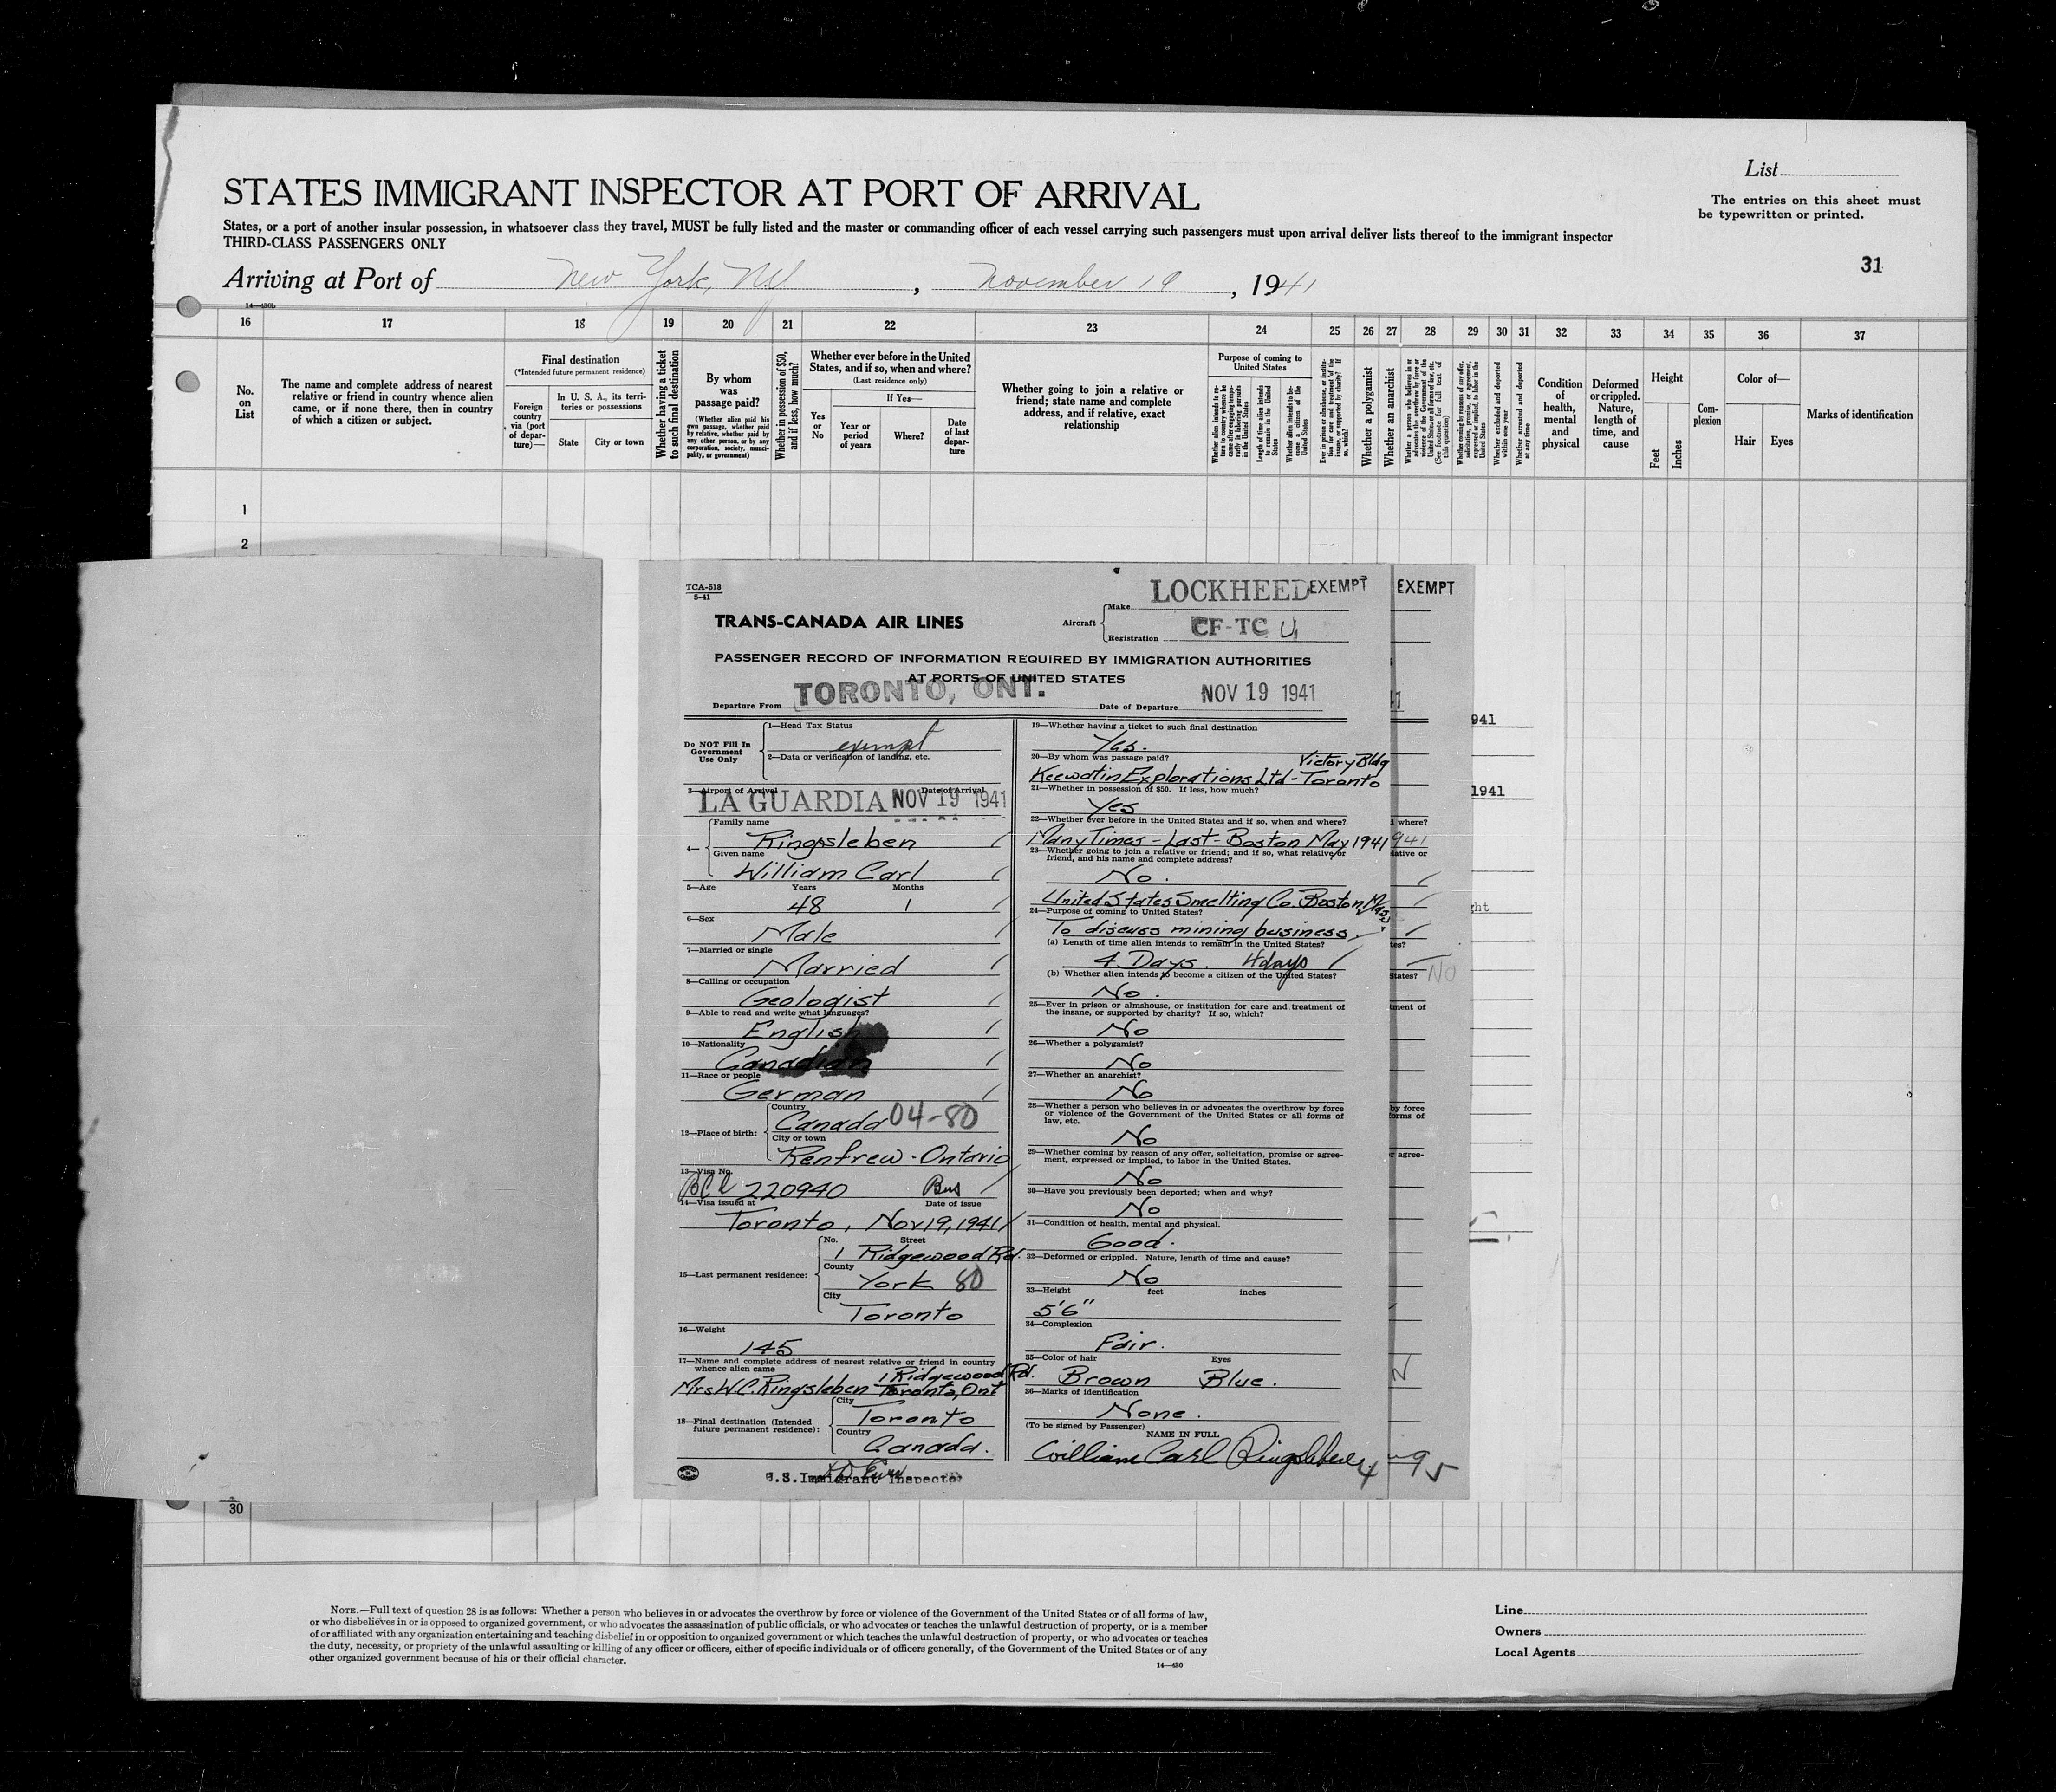 List
STATES IMMIGRANT INSPECTOR AT PORT OF ARRIVAL
The entries on this sheet must
be typewritten or printed.
States, or a port of another insular possession, in whatsoever class they travel, MUST be fully listed and the master or commanding officer of each vessel carrying such passengers must upon arrival deliver lists thereof to the immigrant inspector
THIRD-CLASS PASSENGERS ONLY
31
Arriving at Port of New York, N.Y. , November 19 , 1941
16 17 18 19 20 21 22 23 24 25 26 27 28 29 30 31 32 33 34 35 36 37
No. on List
The name and complete address of nearest relative or friend in country whence alien came, or if none there, then in country of which a citizen or subject.
Final destination
(*Intended future permanent residence)
Foreign country via (port of departure)—
In U. S. A., its territories or possessions
State
City or town
Whether having a ticket to such final destination
By whom was passage paid?
(Whether alien paid his own passage, whether paid by relative, whether paid by any other person, or by any corporation, society, municipality, or government)
Whether in possession of $50, and if less, how much?
Whether ever before in the United States, and if so, when and where?
(Last residence only)
If Yes—
Yes or No
Year or period of years
Where?
Date of last departure
Whether going to join a relative or friend; state name and complete address, and if relative, exact relationship
Purpose of coming to United States
Length of time alien intends to remain in the United States
Whether alien intends to become a citizen of the United States
Whether a polygamist
Whether an anarchist
Whether excluded and deported within one year
Whether arrested and deported at any time
Condition of health, mental and physical
Deformed or crippled. Nature, length of time, and cause
Height
Feet
Inches
Complexion
Color of—
Hair
Eyes
Marks of identification
1
2
TCA-518
5-41
TRANS-CANADA AIR LINES
Aircraft
Make LOCKHEED EXEMPT EXEMPT
Registration CF-TC U
PASSENGER RECORD OF INFORMATION REQUIRED BY IMMIGRATION AUTHORITIES
AT PORTS OF UNITED STATES
Departure From TORONTO, ONT. Date of Departure NOV 19 1941
Do NOT Fill In
Government
Use Only
1—Head Tax Status
exempt
2—Data or verification of landing, etc.
3—Airport of Arrival Date of Arrival
LA GUARDIA NOV 19 1941
4—
Family name
Ringsleben
Given name
William Carl
5—Age Years Months
48 1
6—Sex
Male
7—Married or single
Married
8—Calling or occupation
Geologist
9—Able to read and write what languages?
English
10—Nationality
Canadian
11—Race or people
German
12—Place of birth:
Country
Canada 04-80
City or town
Renfrew - Ontario
13—Visa No.
220940 Bus
14—Visa issued at Date of issue
Toronto, Nov 19, 1941
15—Last permanent residence:
No. Street
1 Ridgewood Rd.
County
York 80
City
Toronto
16—Weight
145
17—Name and complete address of nearest relative or friend in country
whence alien came
1 Ridgewood Rd.
Mrs W.C. Ringsleben Toronto, Ont
18—Final destination (Intended
future permanent residence):
City
Toronto
Country
Canada.
U.S. Immigrant Inspector
19—Whether having a ticket to such final destination
Yes.
20—By whom was passage paid?
Victory Bldg
Keewatin Explorations Ltd - Toronto
21—Whether in possession of $50. If less, how much?
Yes
22—Whether ever before in the United States and if so, when and where?
Many Times - Last - Boston May 1941
23—Whether going to join a relative or friend; and if so, what relative or
friend, and his name and complete address?
No.
United States Smelting Co. Boston, Mass.
24—Purpose of coming to United States?
To discuss mining business.
(a) Length of time alien intends to remain in the United States?
4 Days. 4 days
(b) Whether alien intends to become a citizen of the United States?
No.
25—Ever in prison or almshouse, or institution for care and treatment of
the insane, or supported by charity? If so, which?
No
26—Whether a polygamist?
No
27—Whether an anarchist?
No
28—Whether a person who believes in or advocates the overthrow by force
or violence of the Government of the United States or all forms of
law, etc.
No
29—Whether coming by reason of any offer, solicitation, promise or agree-
ment, expressed or implied, to labor in the United States.
No
30—Have you previously been deported; when and why?
No
31—Condition of health, mental and physical.
Good.
32—Deformed or crippled. Nature, length of time and cause?
No
33—Height feet inches
5'6"
34—Complexion
Fair.
35—Color of hair Eyes
Brown Blue.
36—Marks of identification
None.
(To be signed by Passenger)
NAME IN FULL
William Carl Ringsleben
941
1941
where?
941
lative or
ght
tes?
States? No
tment of
by force
forms of
r agree-
30
NOTE.—Full text of question 28 is as follows: Whether a person who believes in or advocates the overthrow by force or violence of the Government of the United States or of all forms of law,
or who disbelieves in or is opposed to organized government, or who advocates the assassination of public officials, or who advocates or teaches the unlawful destruction of property, or is a member
of or affiliated with any organization entertaining and teaching disbelief in or opposition to organized government or which teaches the unlawful destruction of property, or who advocates or teaches
the duty, necessity, or propriety of the unlawful assaulting or killing of any officer or officers, either of specific individuals or of officers generally, of the Government of the United States or of any
other organized government because of his or their official character.
14—430
Line
Owners
Local Agents